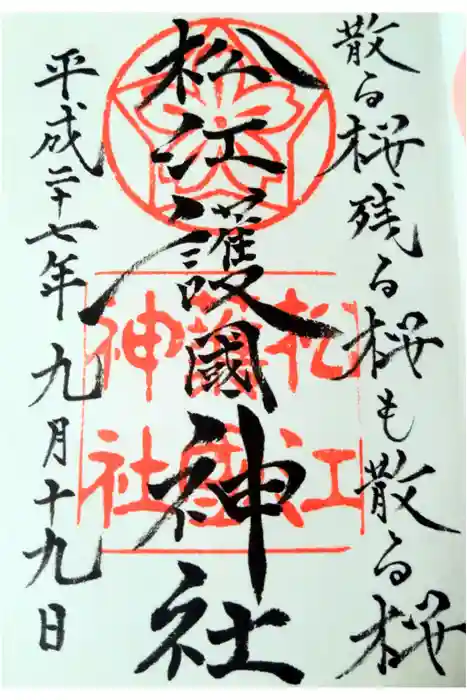 散る桜残る桜も散る桜
松江護國神社
平成二十七年九月十九日
松江
護國
神社